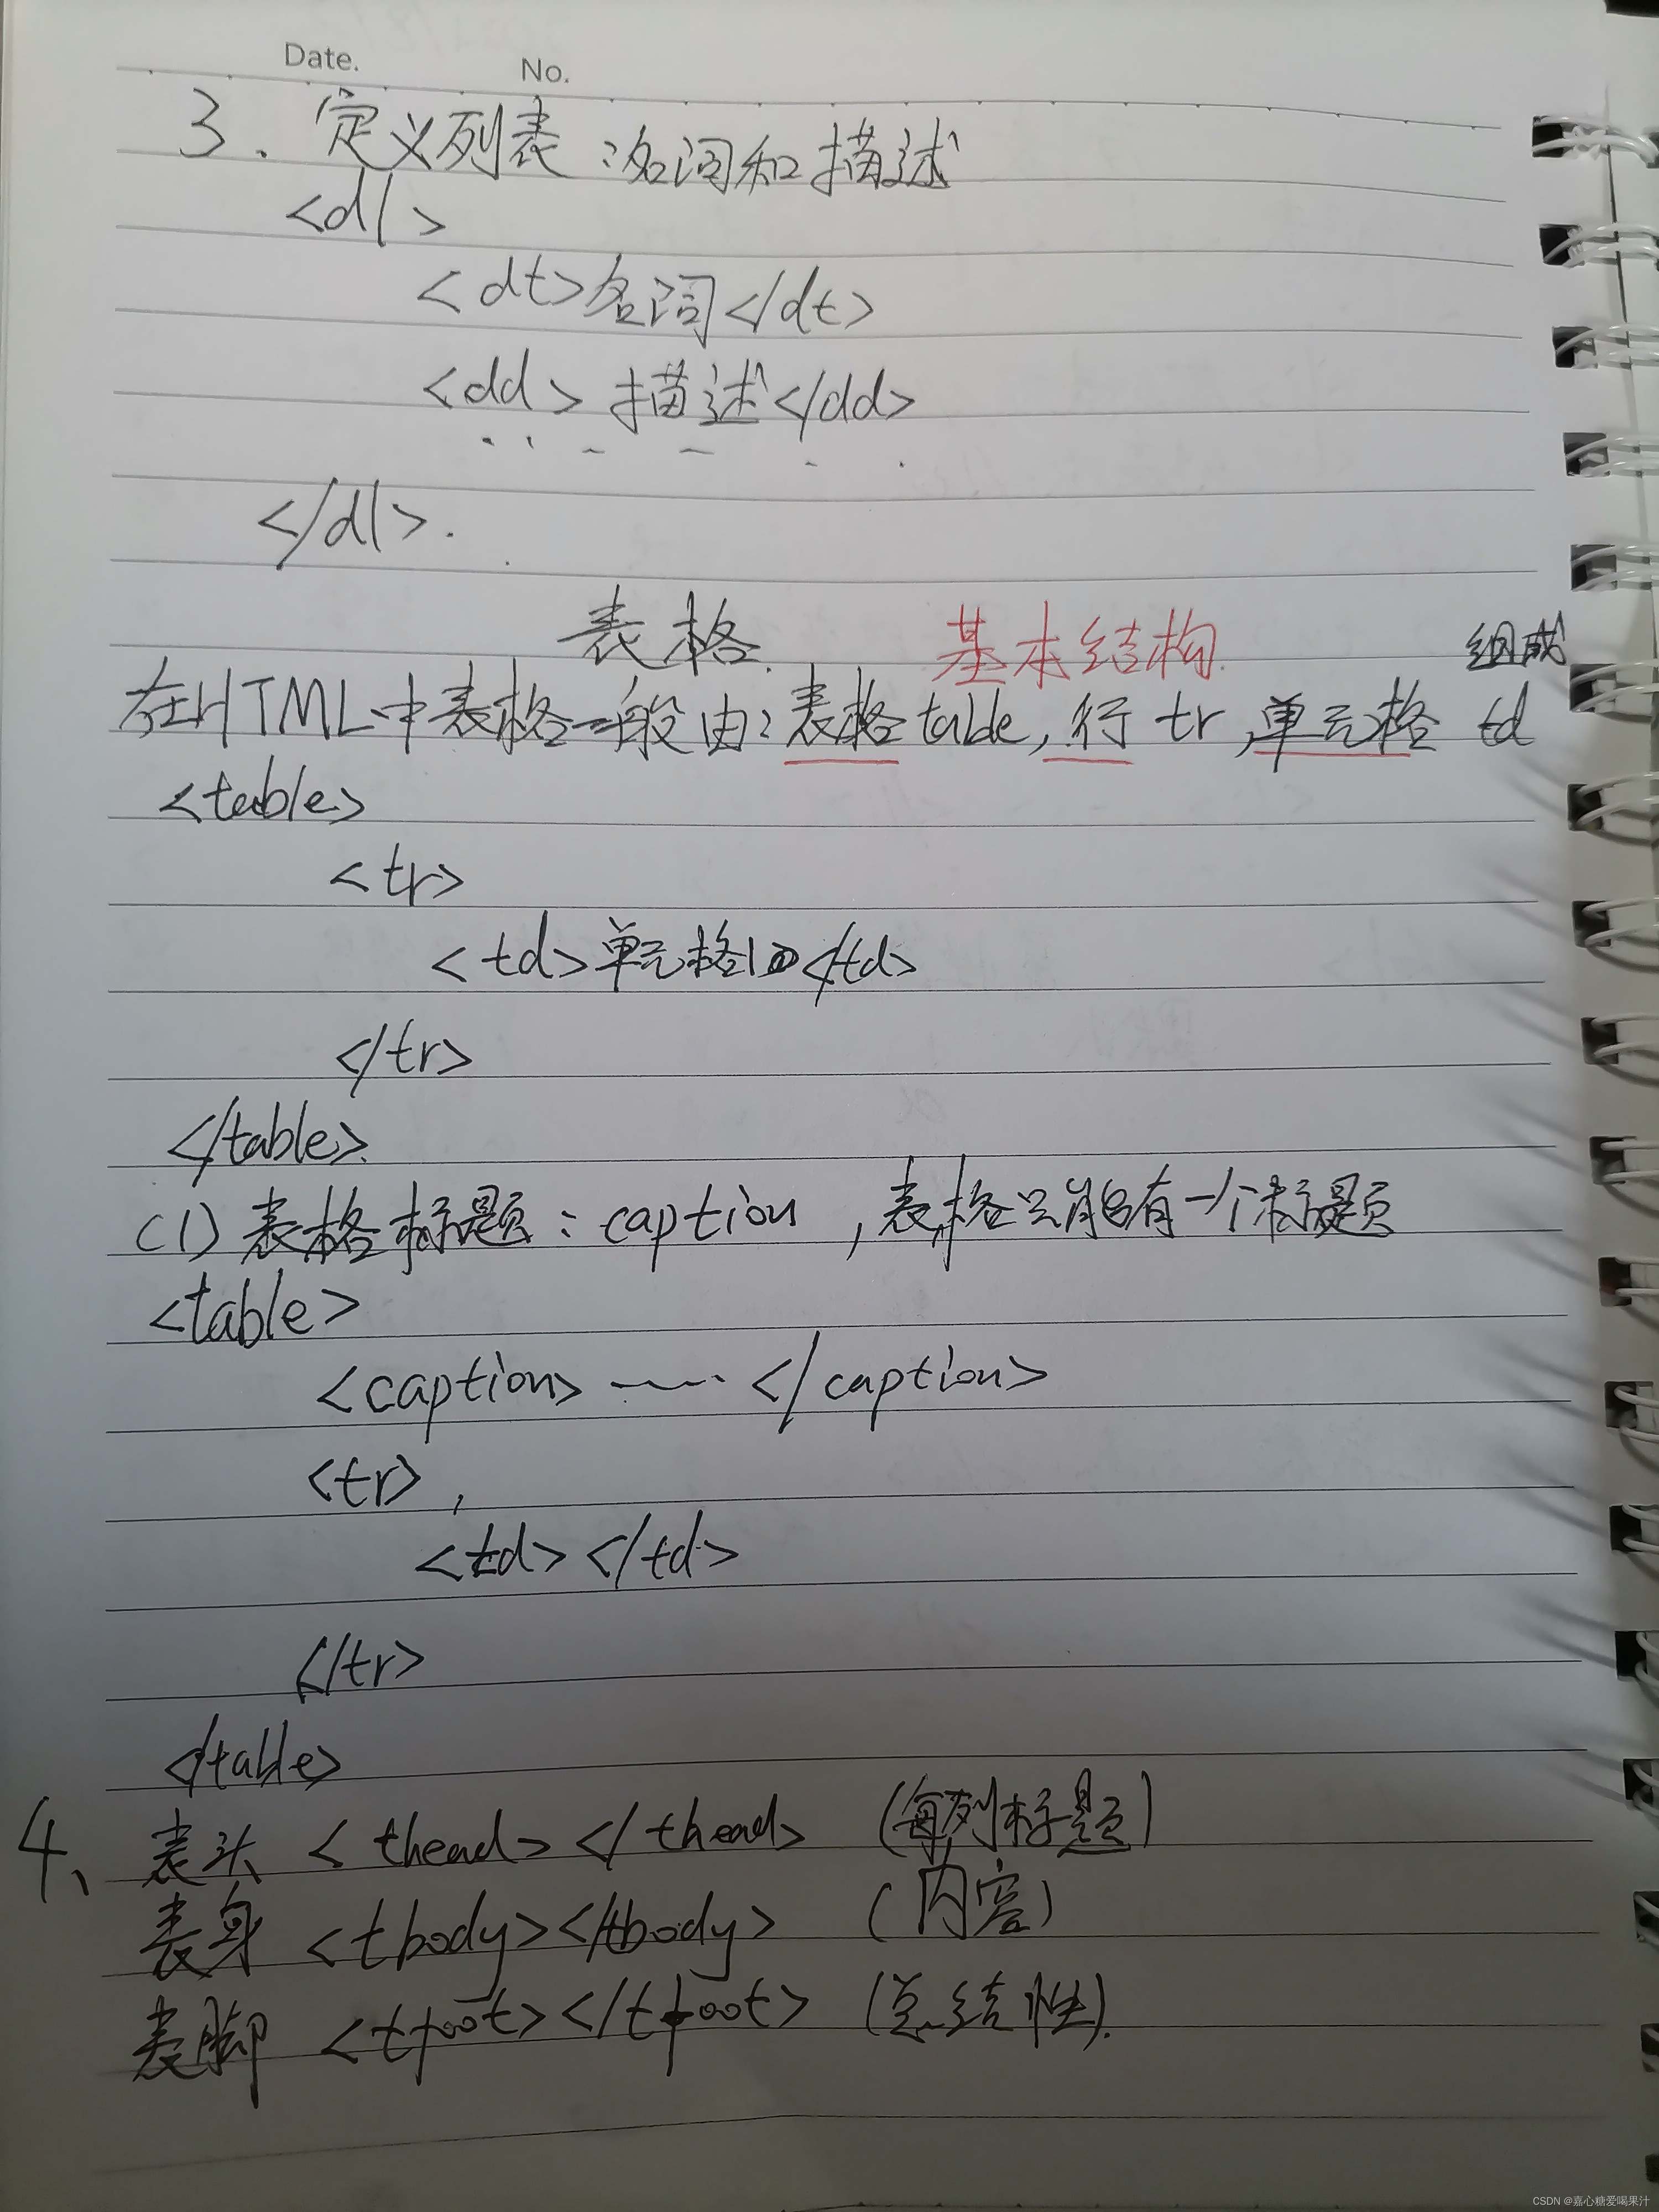 Date. No.
3. 定义列表:名词和描述
<dl>
<dt>名词</dt>
<dd>描述</dd>
</dl>.
表格. 基本结构
组成
在HTML中表格一般由:表格table,行tr,单元格 td
<table>
<tr>
<td>单元格1</td>
</tr>
</table>.
(1)表格标题:caption,表格只能有一个标题
<table>
<caption>……</caption>
<tr>,
<td></td>
</tr>
</table>
4、表头 <thead></thead> (每列标题)
表身 <tbody></tbody> (内容)
表脚 <tfoot></tfoot> (总结性).
CSDN @嘉心糖爱喝果汁